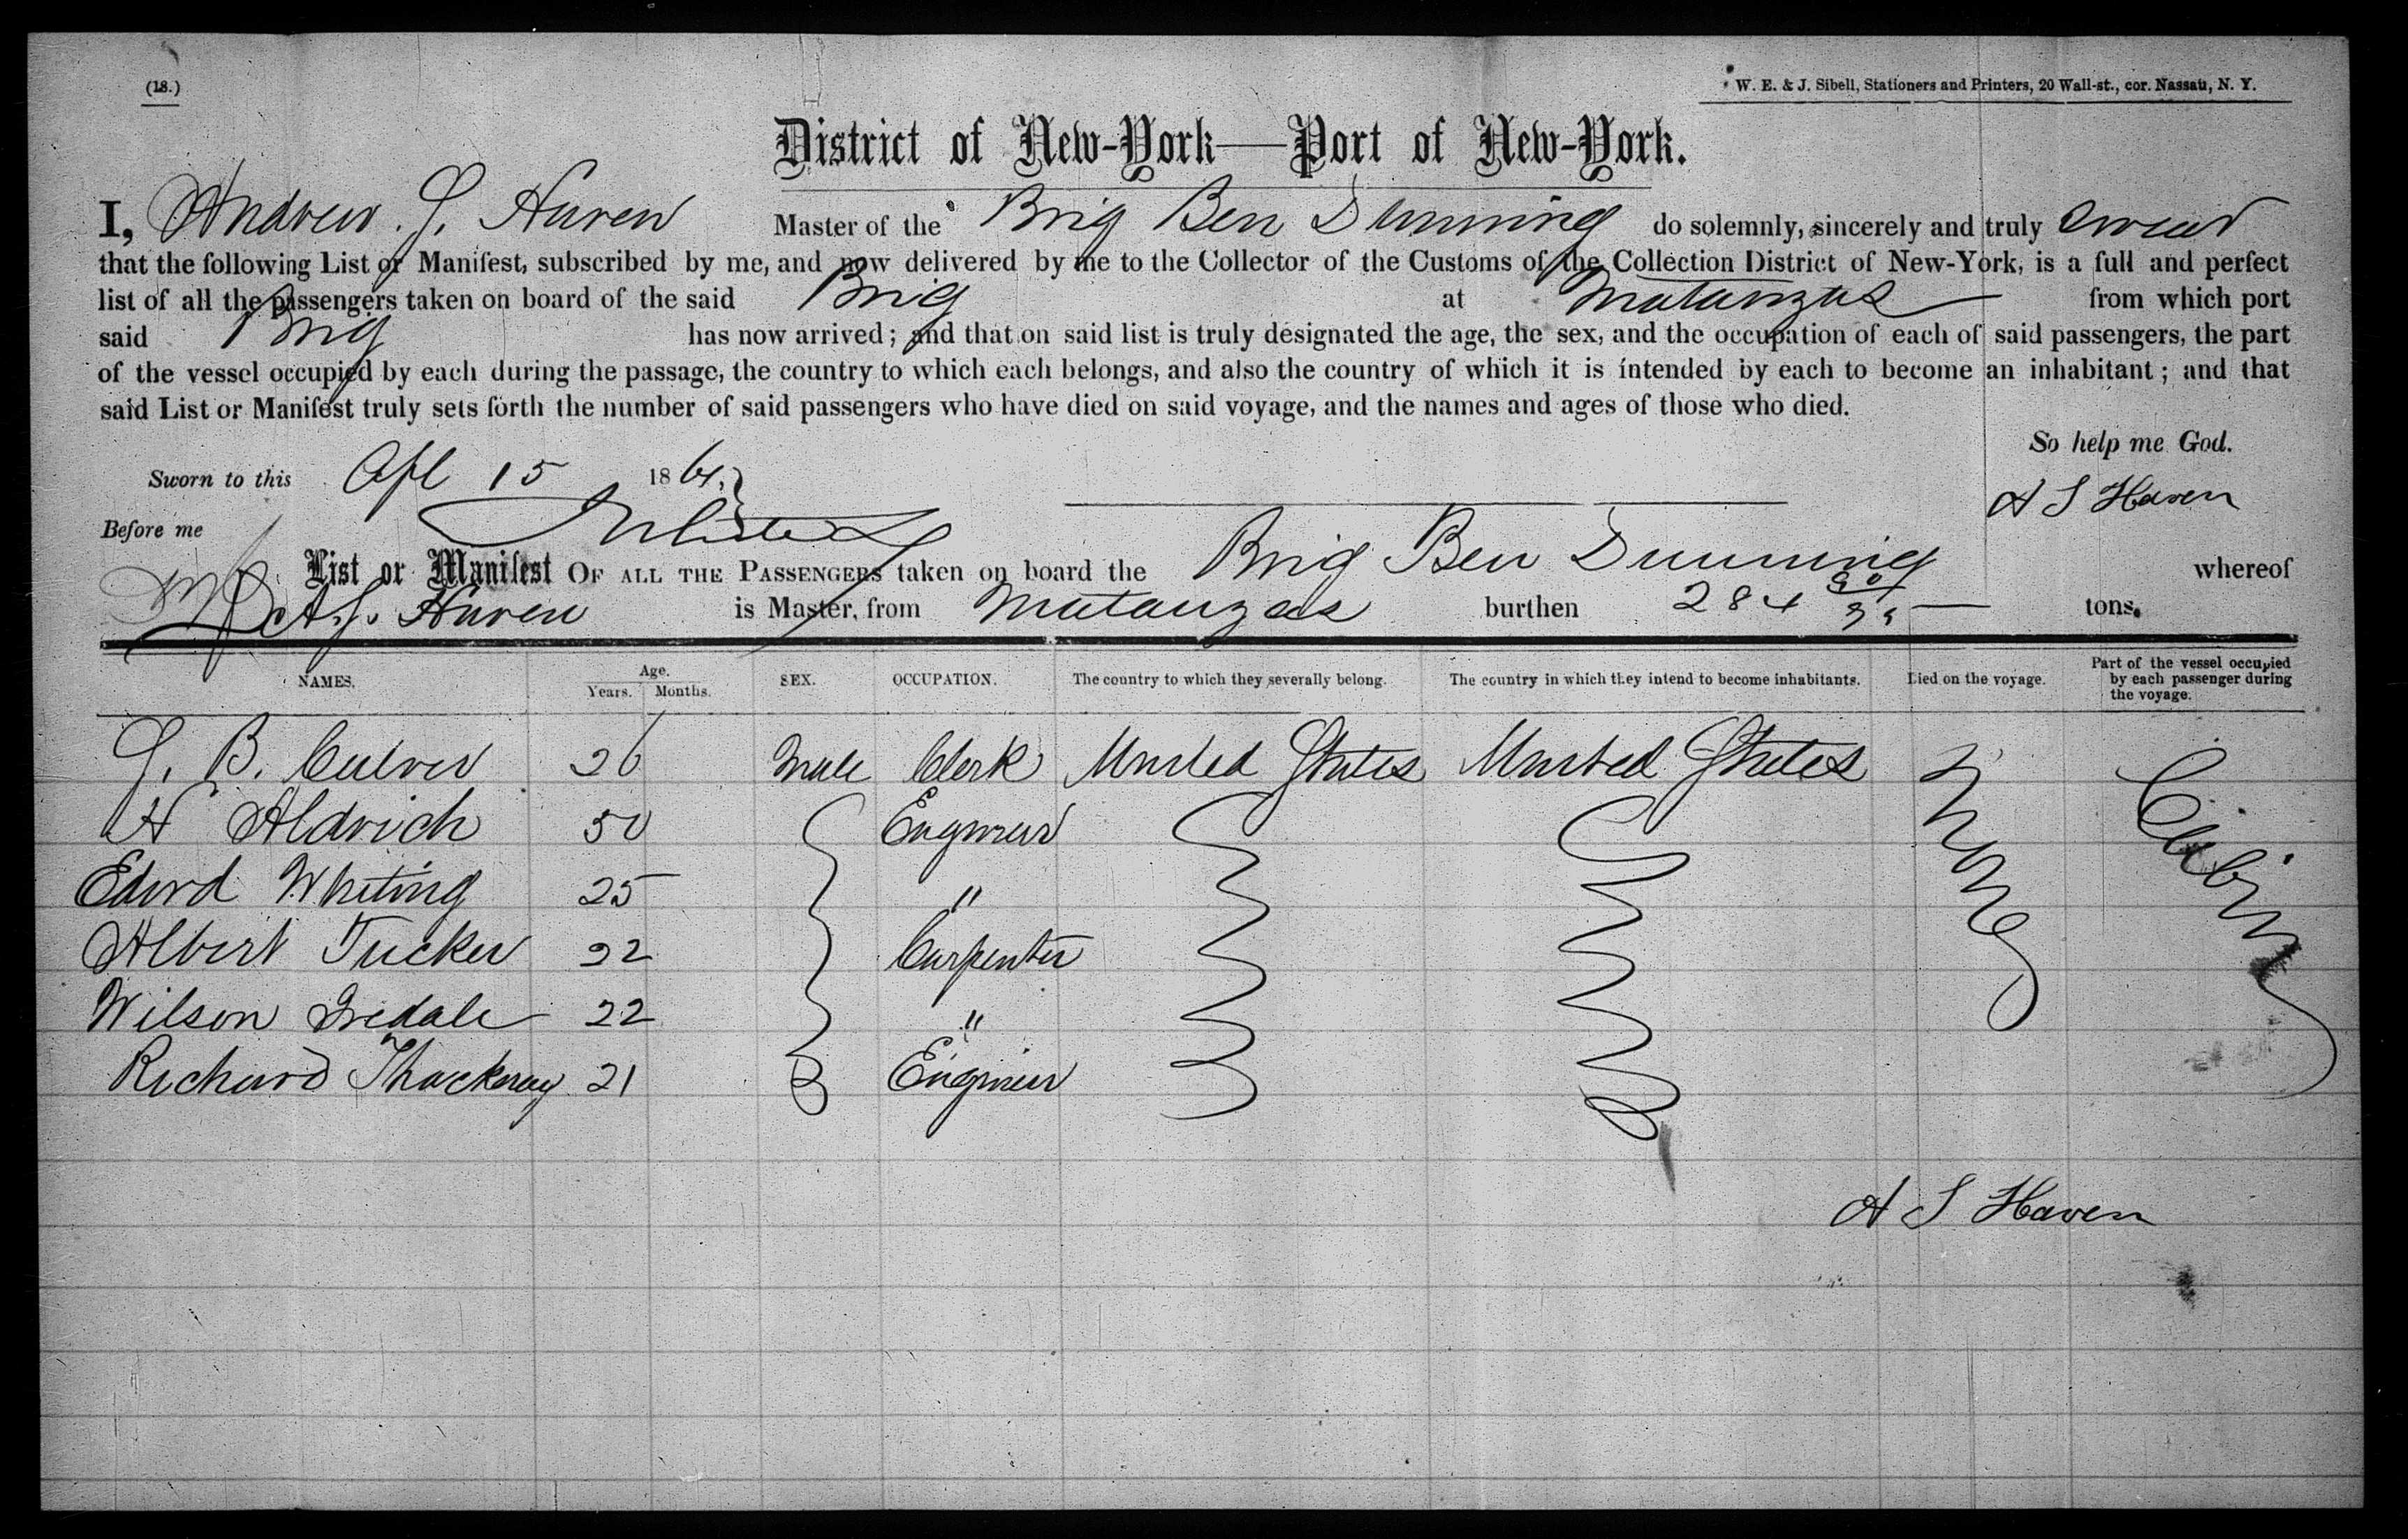 (18.)
W. E. & J. Sibell, Stationers and Printers, 20 Wall-st., cor. Nassau, N. Y.
District of New-York—Port of New-York.
I, Andrew S. Haven Master of the Brig Ben Dunning do solemnly, sincerely and truly swear
that the following List or Manifest, subscribed by me, and now delivered by me to the Collector of the Customs of the Collection District of New-York, is a full and perfect
list of all the passengers taken on board of the said Brig at Matanzas from which port
said Brig has now arrived; and that on said list is truly designated the age, the sex, and the occupation of each of said passengers, the part
of the vessel occupied by each during the passage, the country to which each belongs, and also the country of which it is intended by each to become an inhabitant; and that
said List or Manifest truly sets forth the number of said passengers who have died on said voyage, and the names and ages of those who died.
So help me God.
Sworn to this Apl 15 1861
A S Haven
Before me
List or Manifest OF ALL THE PASSENGERS taken on board the Brig Ben Dunning whereof
A. S. Haven is Master, from Matanzas burthen 284 tons.
NAMES. Age. Years. Months. SEX. OCCUPATION. The country to which they severally belong. The country in which they intend to become inhabitants. Died on the voyage. Part of the vessel occupied by each passenger during the voyage.
S. B. Culver 26 Male Clerk United States United States None Cabin
H Aldrich 50 Engineer
Edwd Whiting 25 "
Albert Tucker 22 Carpenter
Wilson Iredale 22 "
Richard Thackeray 21 Engineer
A S Haven